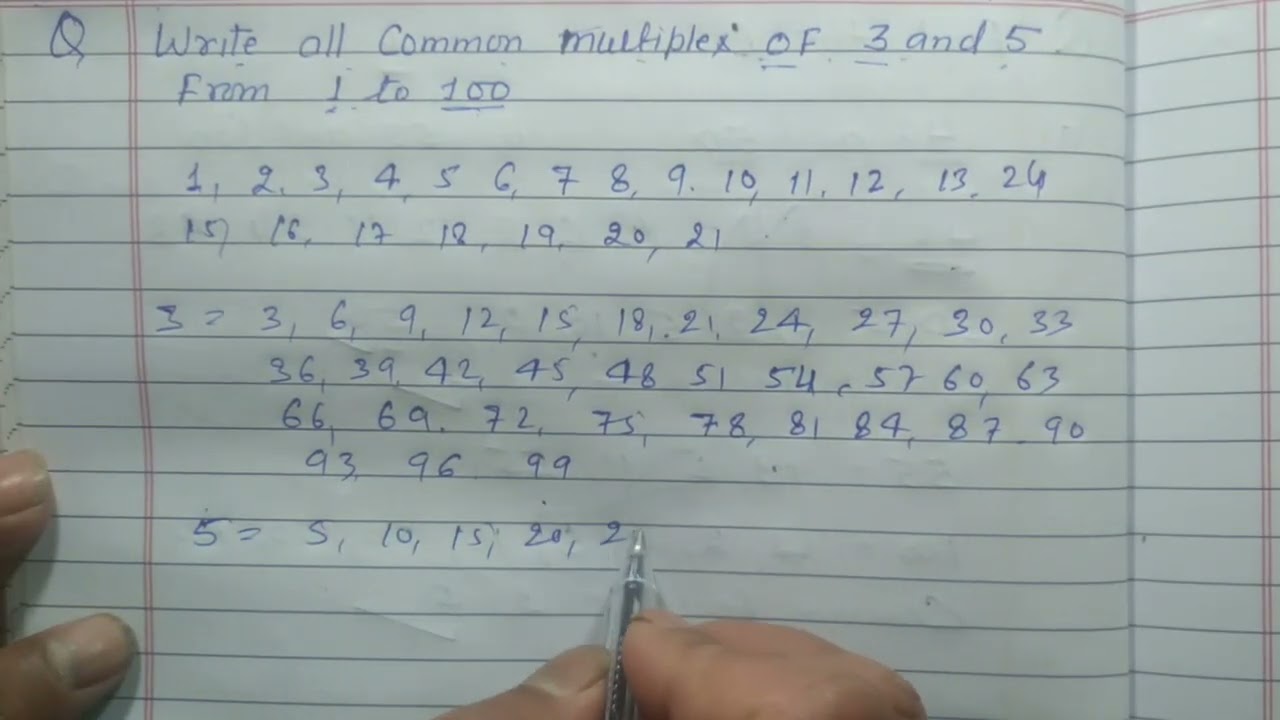 Q Write all Common multiplex of 3 and 5
From 1 to 100
1, 2, 3, 4, 5 6, 7 8, 9. 10, 11, 12, 13, 24
15, 16, 17 18, 19, 20, 21
3 = 3, 6, 9, 12, 15, 18, 21, 24, 27, 30, 33
36, 39, 42, 45, 48 51 54, 57 60, 63
66, 69. 72, 75, 78, 81 84, 87 90
93, 96 99
5 = 5, 10, 15, 20, 2